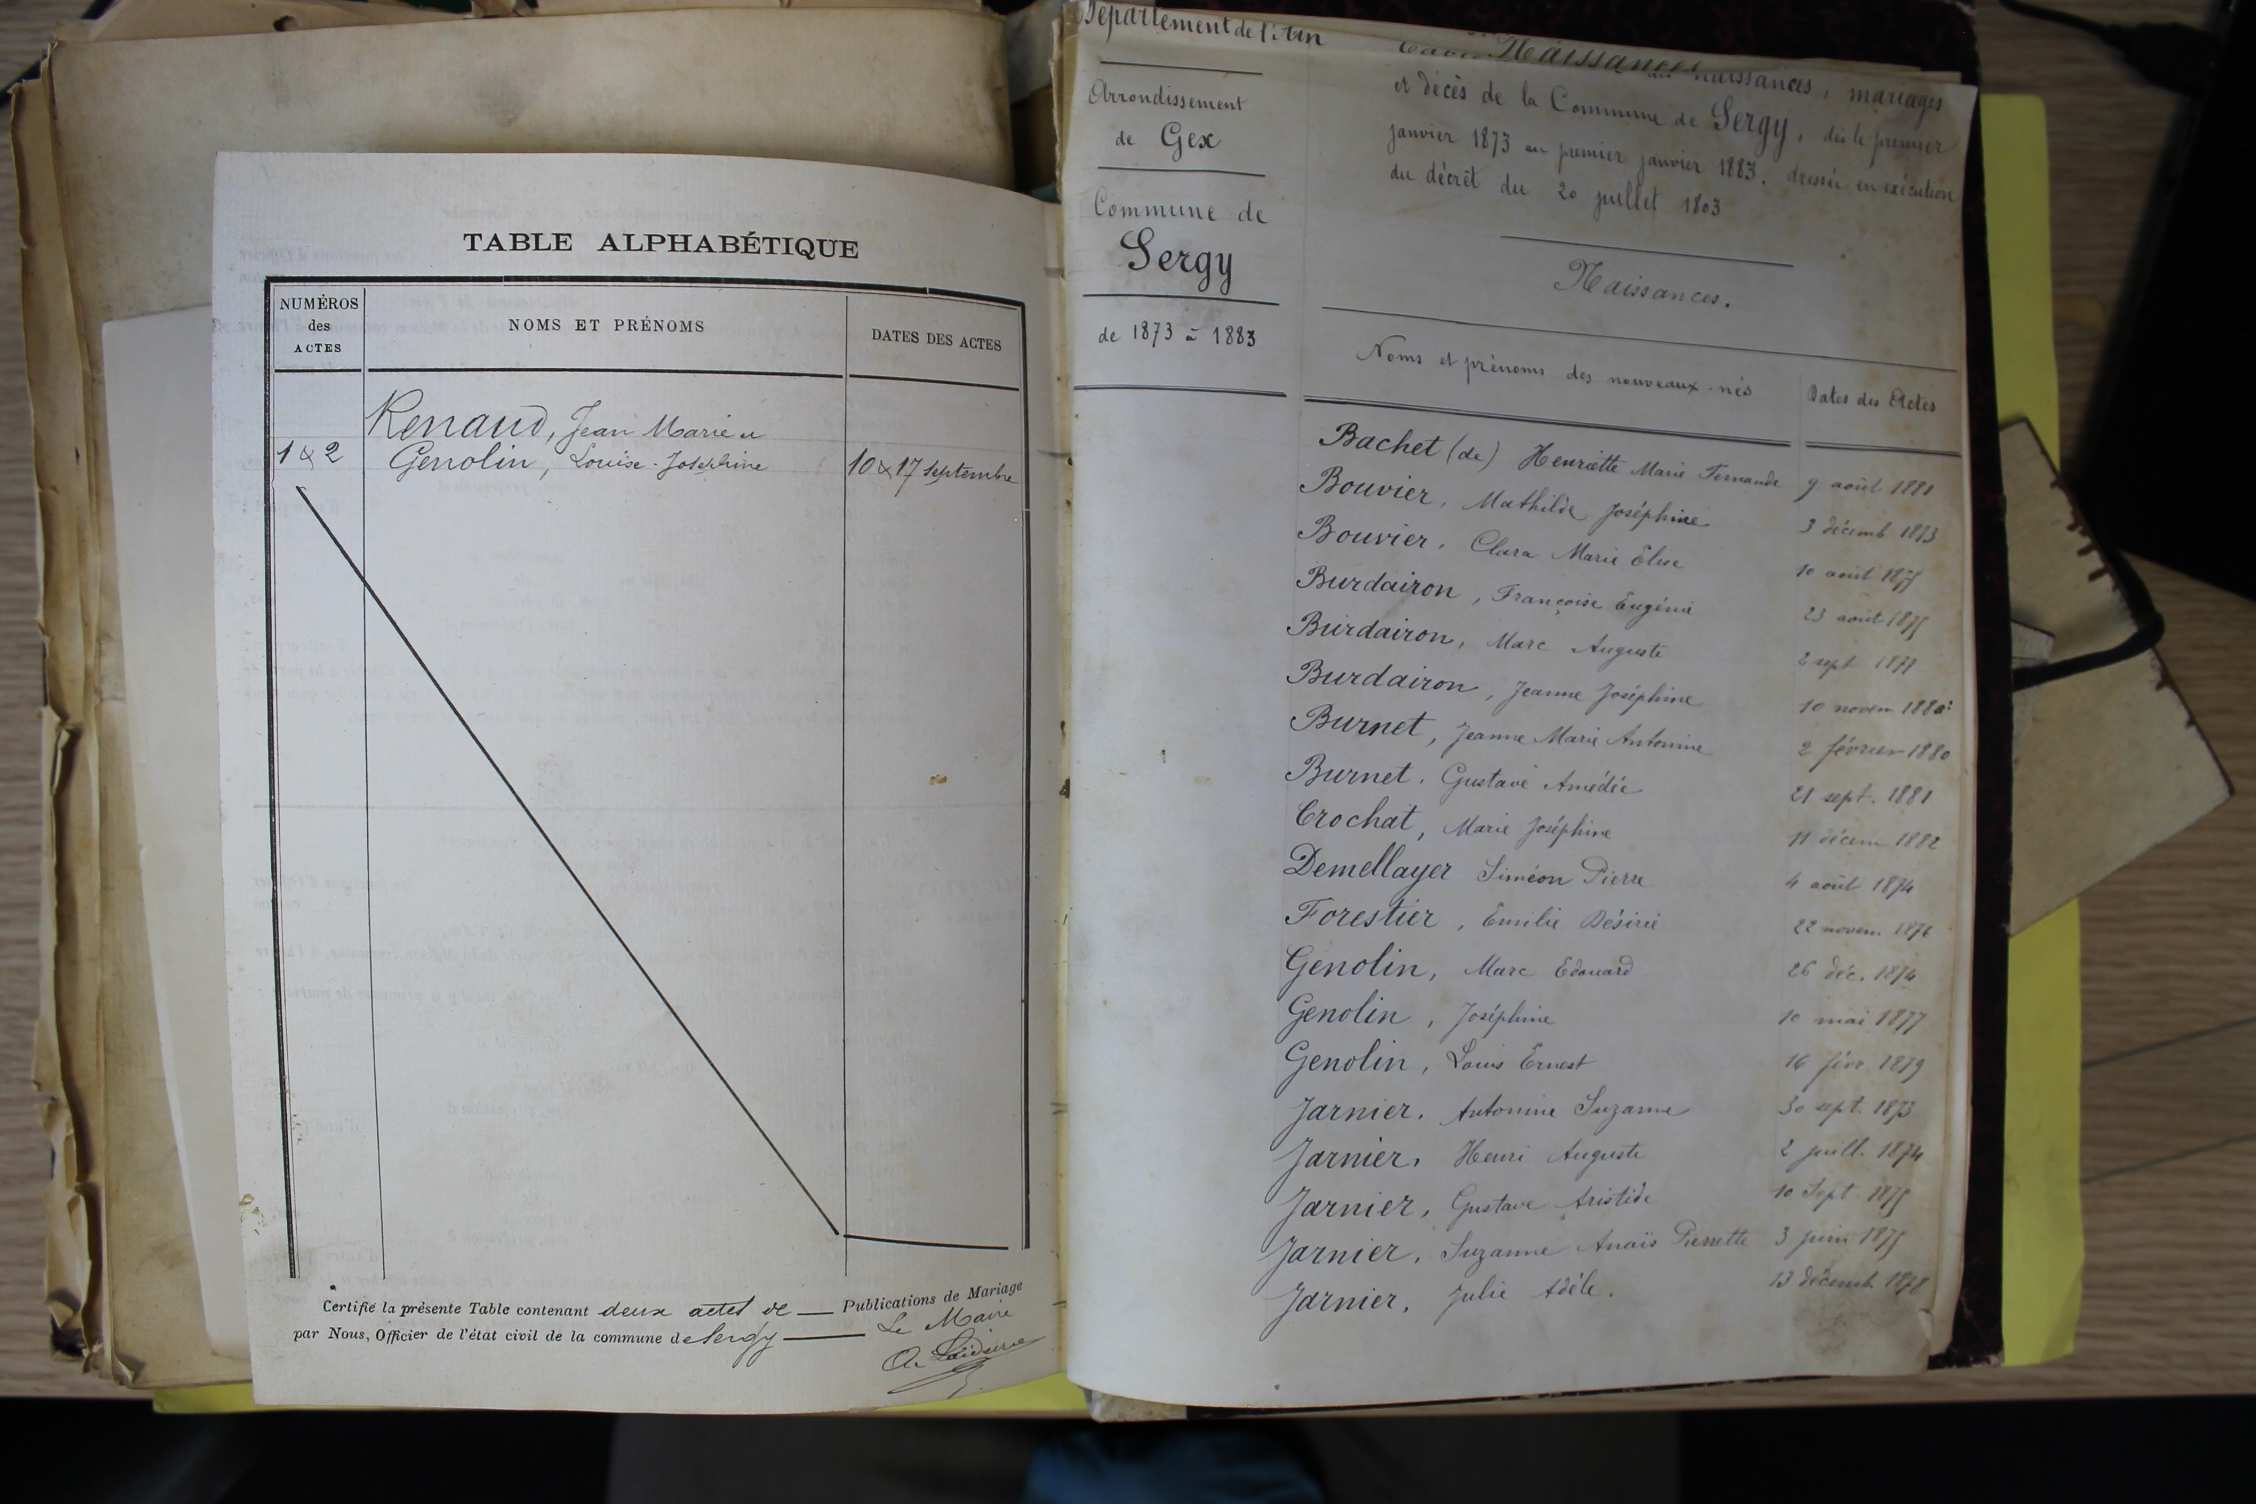 TABLE ALPHABÉTIQUE
NUMÉROS
des
ACTES
NOMS ET PRÉNOMS
DATES DES ACTES
Renaud, Jean Marie et
1 & 2 Genolin, Louise-Joséphine 10 & 17 Septembre
Certifié la présente Table contenant deux actes de — Publications de Mariage
par Nous, Officier de l'état civil de la commune de Sergy — Le Maire
Département de l'Ain
Arrondissement
de Gex
Commune de
Sergy
de 1873 à 1883
Naissances
naissances, mariages
et décès de la Commune de Sergy, dès le premier
janvier 1873 au premier janvier 1883, dressée en exécution
du décrêt du 20 juillet 1803
Naissances.
Noms et prénoms des nouveaux-nés Dates des Actes
Bachet (de) Henriette Marie Fernande 9 août 1881
Bouvier, Mathilde Joséphine 3 décemb 1873
Bouvier, Clara Marie Elise 10 août 1875
Burdairon, Françoise Eugénie 23 août 1875
Burdairon, Marc Auguste 2 sept
Burdairon, Jeanne Joséphine 10 novem
Burnet, Jeanne Marie Antonine 2 février 1880
Burnet, Gustave Amédée 21 sept. 1881
Crochat, Marie Joséphine 11 décem 1882
Demellayer Siméon Pierre 4 août 1874
Forestier, Emilie Désirée 22 novem 1876
Genolin, Marc Edouard 26 déc. 1874
Genolin, Joséphine 10 mai 1877
Genolin, Louis Ernest 16 févr. 1879
Jarnier, Antonine Suzanne 30 sept. 1873
Jarnier, Henri Auguste 2 juill. 1874
Jarnier, Gustave Aristide 10 Sept. 1875
Jarnier, Suzanne Anaïs Pierrette 3 juin 1875
Jarnier, Julie Adèle. 13 décemb 1878